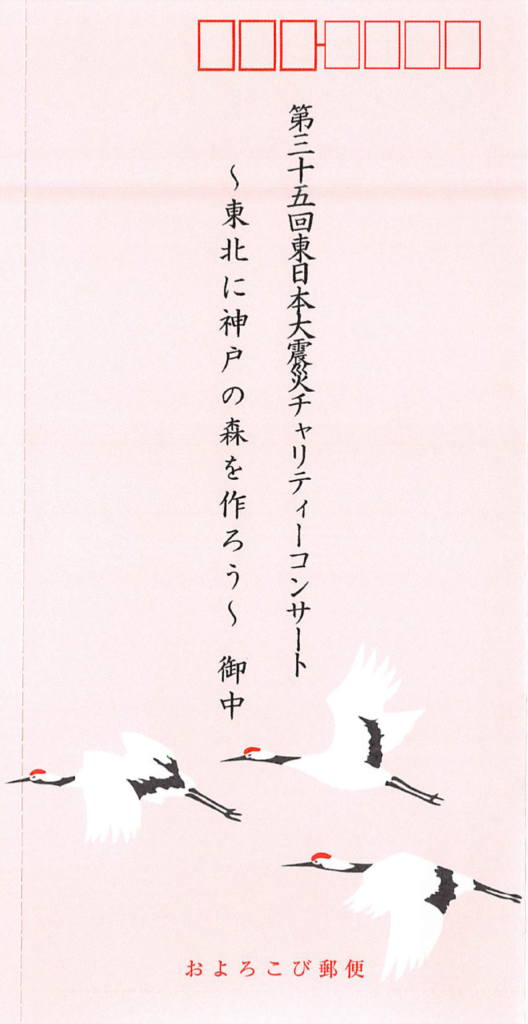 第三十五回東日本大震災チャリティーコンサート
〜東北に神戸の森を作ろう〜　御中
およろこび郵便